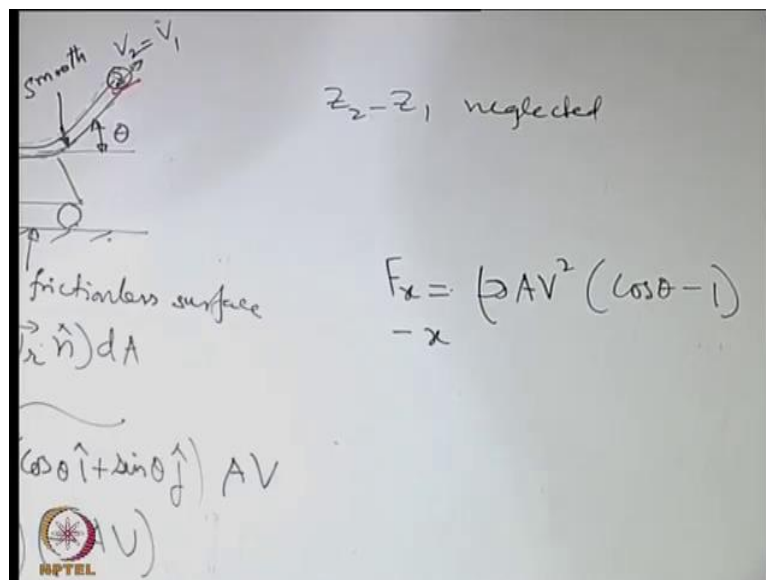 V₂ = V₁
smooth
θ
Z₂ - Z₁ neglected
frictionless surface
n̂) dA
Fₓ = ρAV² (cosθ - 1)
- x
cosθ î + sinθ ĵ) AV
AV)
NPTEL